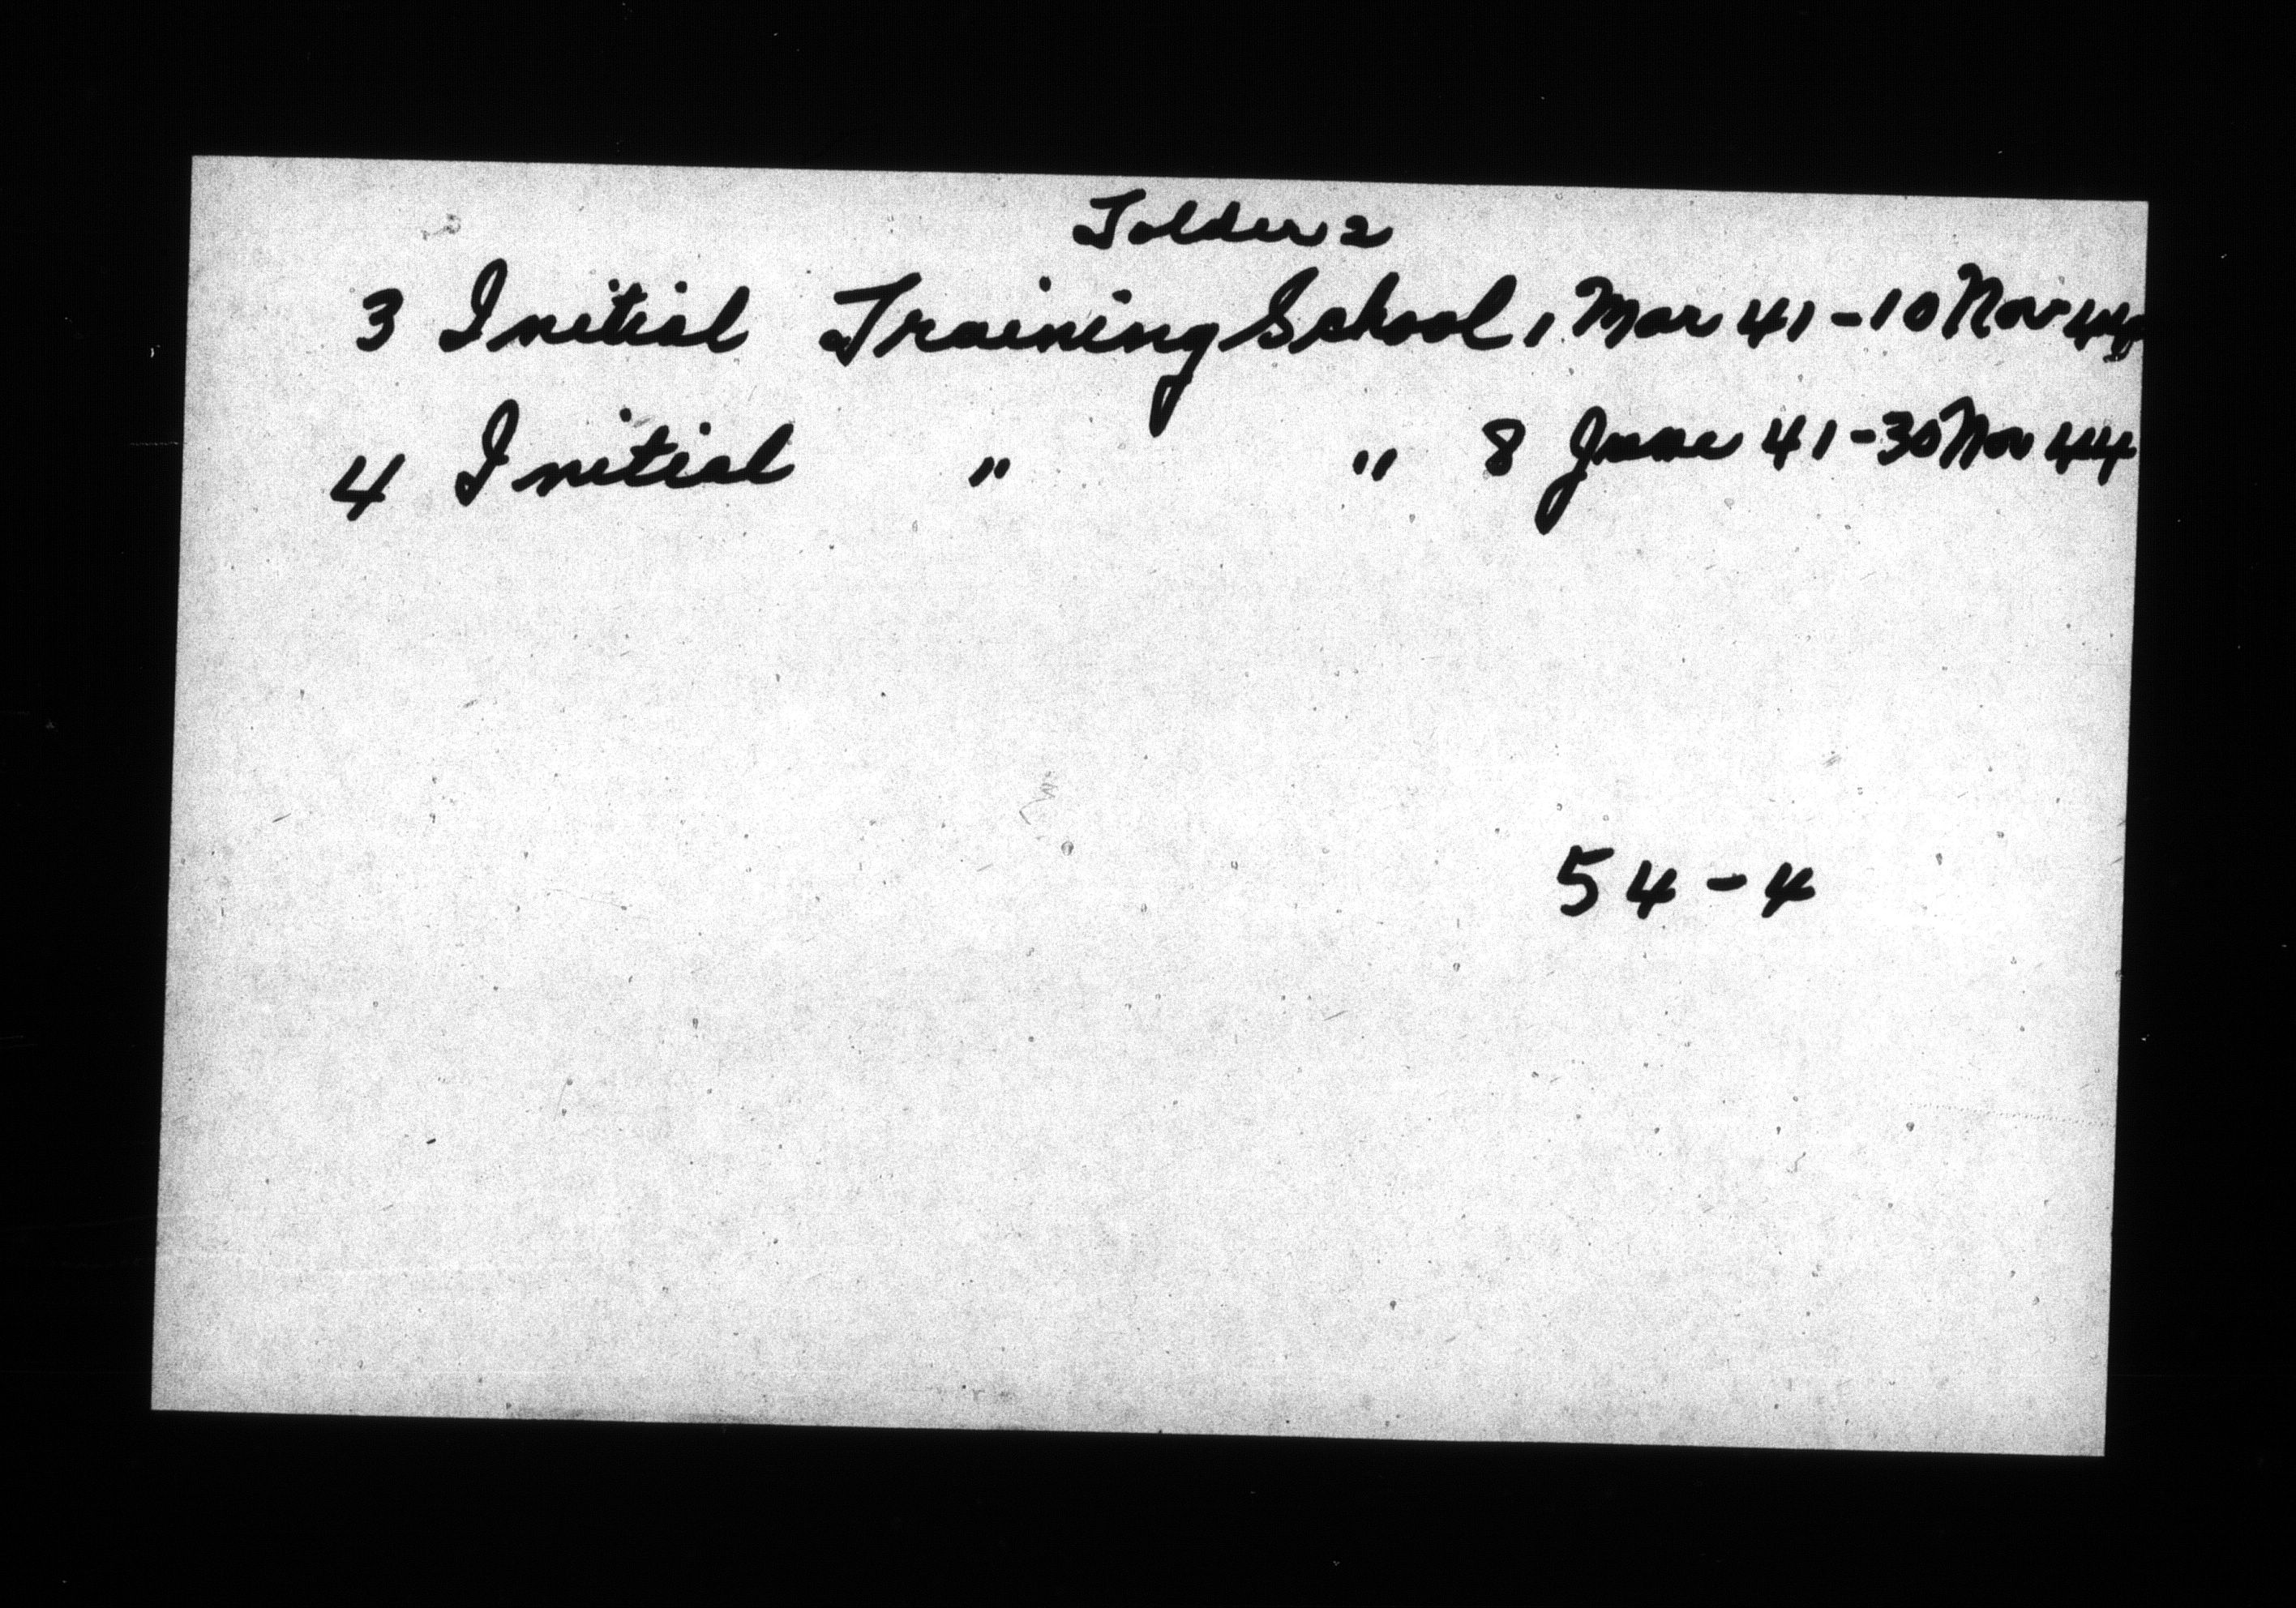 Folder 2
3 Initial Training School, 1 Mar 41-10 Nov 44
4 Initial " " 8 June 41-30 Nov 44
54-4